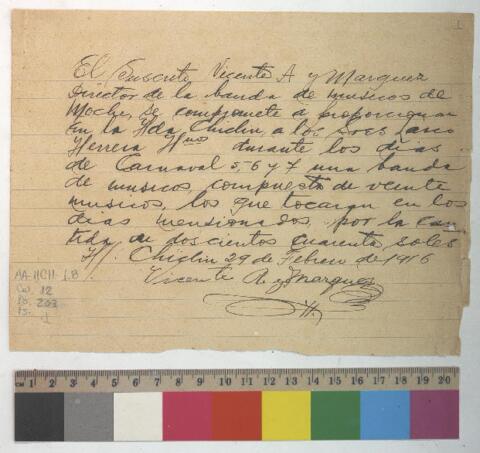 1
El Suscrito Vicente A y Marquez
Director de la banda de musicos de
Moche, se compromete a proporcionar
en la Hda. Chiclin, a los Sres Larco
Herrera Hnos durante los dias
de Carnaval 5, 6 y 7 una banda
de musicos, compuesta de veinte
musicos, los que tocaran en los
dias mensionados, por la can-
tida de doscientos cuarenta soles
H/. Chiclin 29 de Febrero de 1916
Vicente A. y Marquez
AA-HCH-1.8
Ca. 12
Do. 203
Fs. 1
CM 1 2 3 4 5 6 7 8 9 10 11 12 13 14 15 16 17 18 19 20